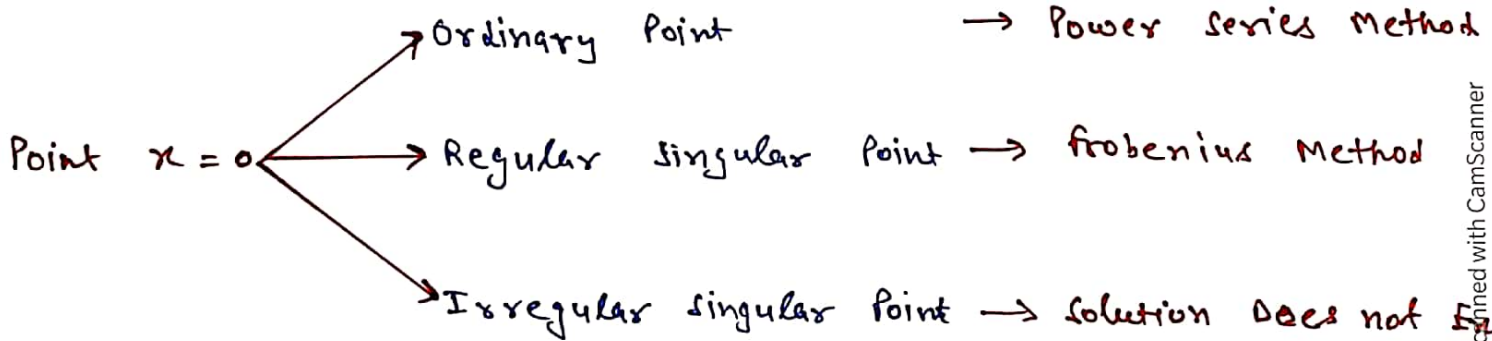 Ordinary Point → Power series Method
Point x = 0 Regular singular Point → frobenius Method
Irregular singular Point → solution Does not
nned with CamScanner